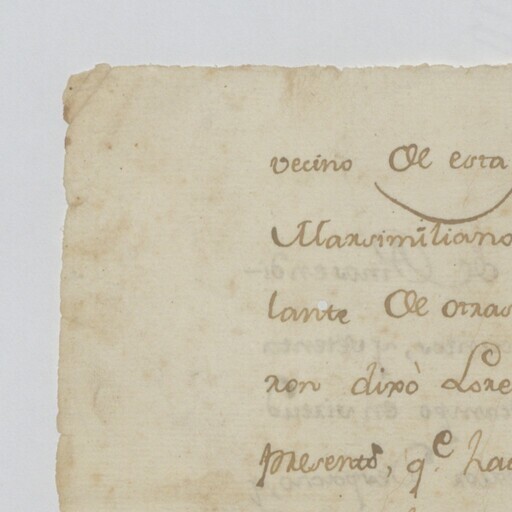 vecino de esta
Marsimiliano
lante de otras
ron dixò Lore
presento, q.e hac